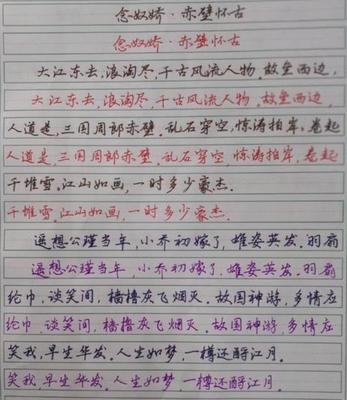 念奴娇·赤壁怀古
念奴娇·赤壁怀古
大江东去,浪淘尽,千古风流人物.故垒西边,
大江东去,浪淘尽,千古风流人物,故垒西边,
人道是,三国周郎赤壁.乱石穿空,惊涛拍岸,卷起
人道是,三国周郎赤壁.乱石穿空,惊涛拍岸,卷起
千堆雪.江山如画,一时多少豪杰.
千堆雪.江山如画,一时多少豪杰.
遥想公瑾当年,小乔初嫁了,雄姿英发.羽扇
遥想公瑾当年,小乔初嫁了,雄姿英发.羽扇
纶巾,谈笑间,樯橹灰飞烟灭.故国神游,多情应
纶巾,谈笑间,樯橹灰飞烟灭.故国神游,多情应
笑我,早生华发.人生如梦,一樽还酹江月.
笑我,早生华发.人生如梦,一樽还酹江月.